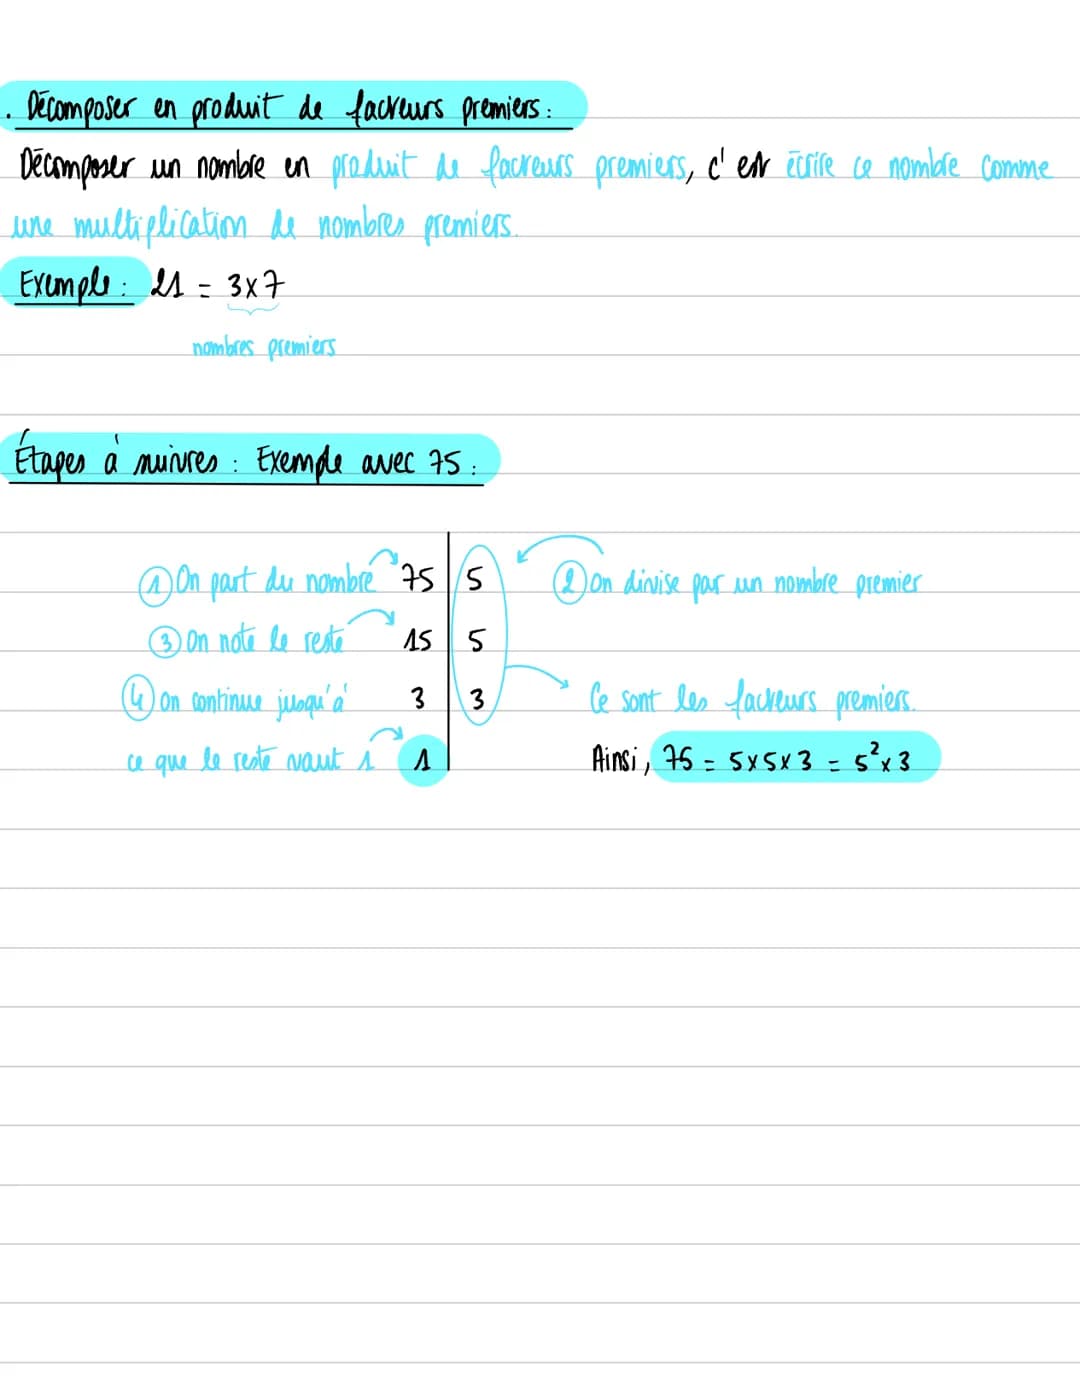 . Décomposer en produit de facteurs premiers :
Décomposer un nombre en produit de facteurs premiers, c'est écrire ce nombre comme
une multiplication de nombres premiers.
Exemple : 21 = 3x7
nombres premiers
Étapes à suivres : Exemple avec 75 :
① On part du nombre 75 | 5 ② On divise par un nombre premier
③ On note le reste 15 | 5
④ On continue jusqu'à 3 | 3 Ce sont les facteurs premiers.
ce que le reste vaut 1 1 | Ainsi, 75 = 5x5x3 = 5²x3